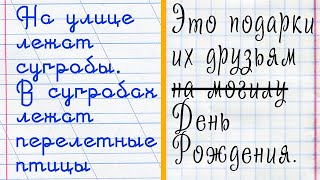 На улице
лежат
сугробы.
В сугробах
лежат
перелетные
птицы
Это подарки
их друзьям
на могилу
День
Рождения.